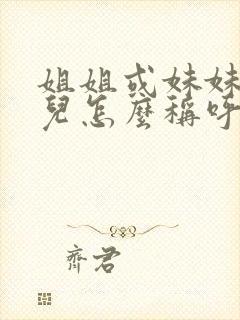 姐姐或妹妹
兒怎麼稱呼
齊君